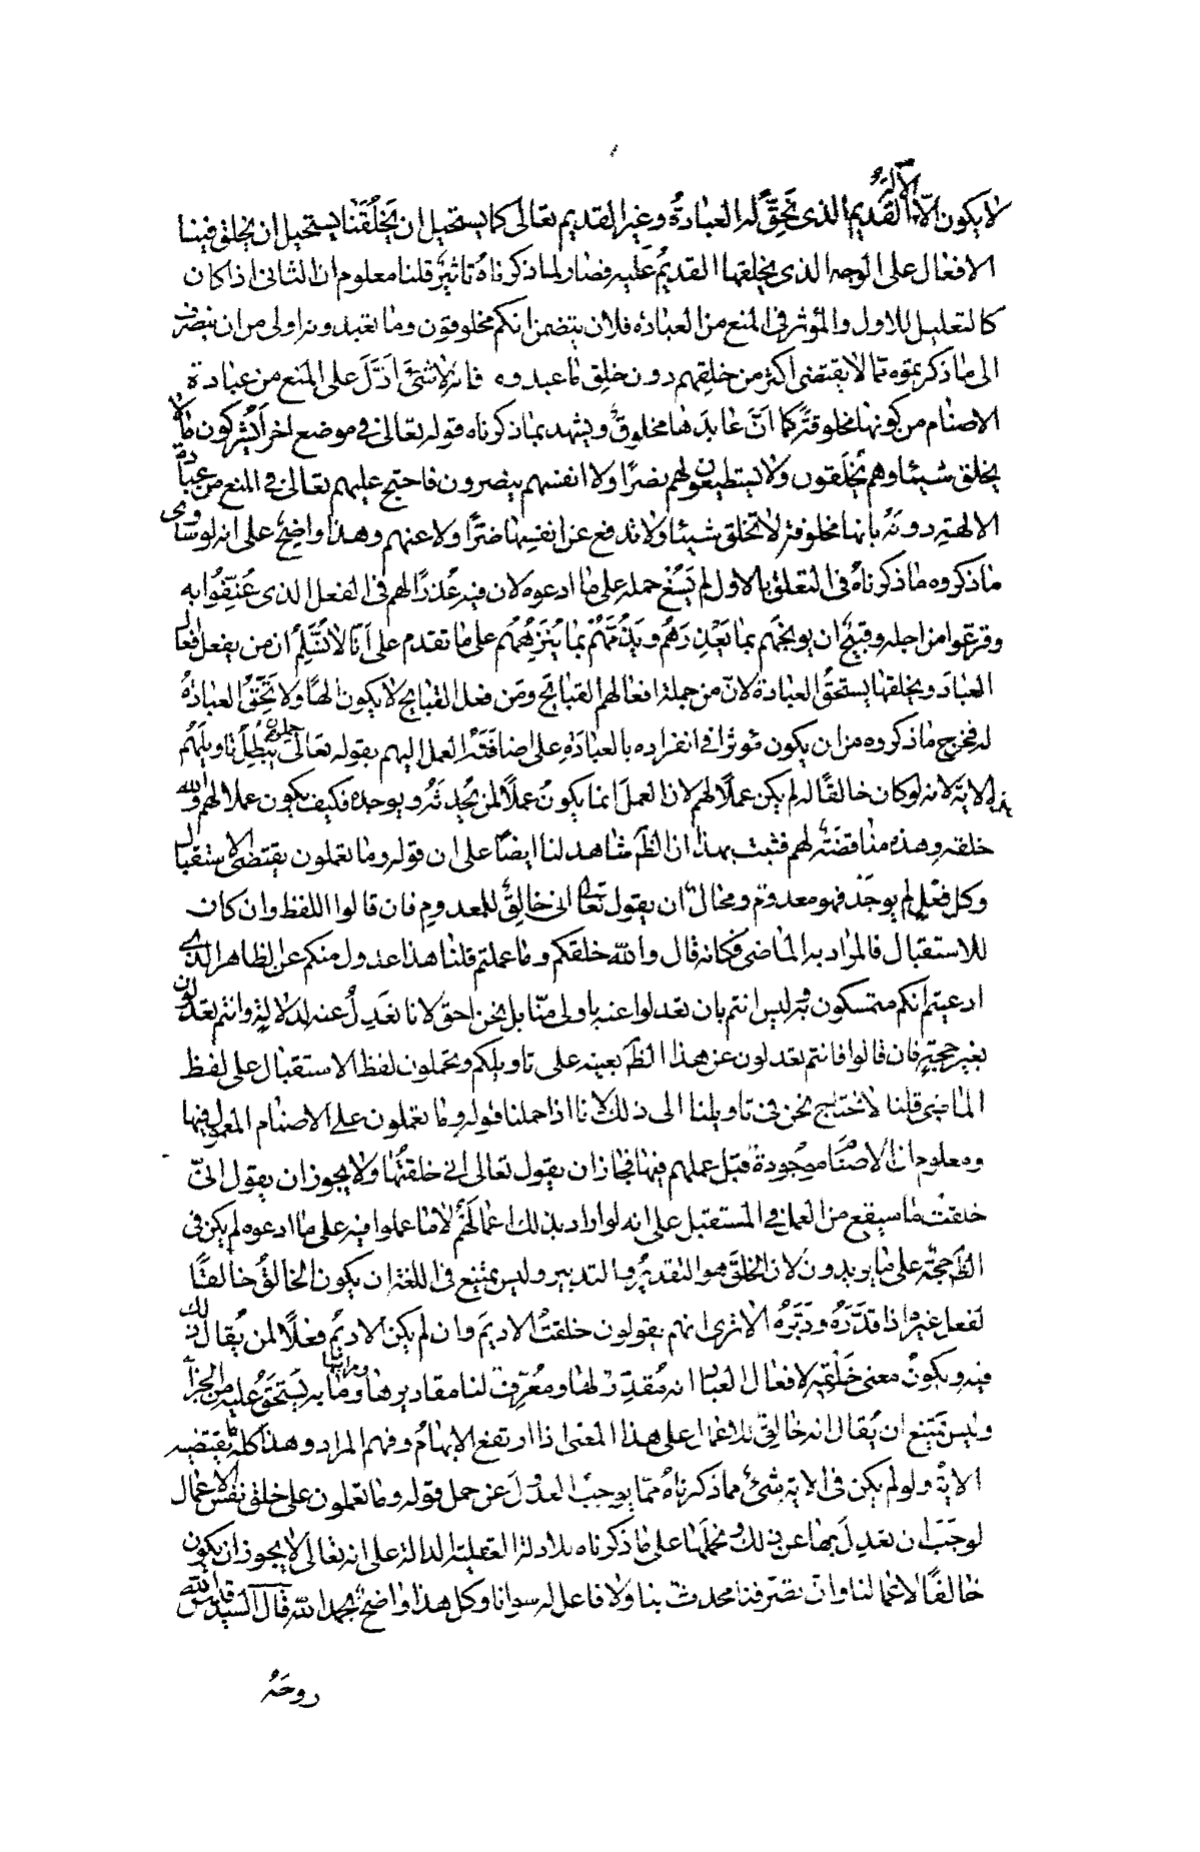 لا يكون الا الاله القديم الذى تحق له العبادة وغير القديم تعالى كما يستحيل ان يخلقنا يستحيل ان يخلق فينا
الافعال على الوجه الذى يخلقها القديم عليه فصار لما ذكرناه تاثير قلنا معلوم ان الثانى اذا كان
كالتعليل للاول والمؤثر فى المنع من العبادة فلان يتضمن انكم مخلوقون وما تعبدونه اولى من ان ينصرف
الى ما ذكرتموه مما لا يقتضى اكثر من خلقهم دون خلق ما عبدوه فانه لا شئ ادل على المنع من عبادة
الاصنام من كونها مخلوقة كما ان عابدها مخلوق ويشهد بما ذكرناه قوله تعالى فى موضع اخر ايشركون ما لا
يخلق شيئا وهم يخلقون ولا يستطيعون لهم نصرا ولا انفسهم ينصرون فاحتج عليهم تعالى فى المنع من عبادة
الالهة دونه بانها مخلوقة لا تخلق شيئا ولا تدفع عن انفسها ضرا ولا عنهم وهذا واضح على انه لو ساوى
ما ذكروه ما ذكرناه فى التعلق بالاول لم يسغ حمله على ما ادعوه لان فيه عذرا لهم فى الفعل الذى عنفوا به
وقرعوا من اجله وقبيح ان يوبخهم بما يعذرهم ويذمهم بما ينزههم على ما تقدم على انا لا نسلم ان من يفعل افعال
العباد ويخلقها يستحق العبادة لان من جملة افعالهم القبائح ومن فعل القبايح لا يكون الها ولا تحق العبادة
له فخرج ما ذكروه من ان يكون مؤثرا فى انفراده بالعبادة على اضافته العمل اليهم بقوله تعالى يبطل تاويلهم
هذه الاية لانه لو كان خالقا له لم يكن عملا لهم لان العمل انما يكون عملا لمن يحدثه ويوجده فكيف يكون عملا لهم والله
خلقه وهذه مناقضة لهم فثبت بهذا ان الظ شاهد لنا ايضا على ان قوله وما تعملون يقتضى الاستقبال
وكل فعل لم يوجد فهو معدوم ومحال ان يقول تعالى انى خالق للمعدوم فان قالوا اللفظ وان كان
للاستقبال فالمراد به الماضى فكانه قال والله خلقكم وما عملتم قلنا هذا عدول منكم عن الظاهر الذى
ادعيتم انكم متمسكون به وليس انتم بان تعدلوا عنه باولى منا بل نحن احق لانا نعدل عنه لدلالة وانتم تعدلون
بغير حجة فان قالوا فانتم تعدلون عن هذا الظ بعينه على تاويلكم وتحملون لفظ الاستقبال على لفظ
الماضى قلنا لا نحتاج نحن فى تاويلنا الى ذلك لانا اذا حملنا قوله وما تعملون على الاصنام المعمول فيها
ومعلوم ان الاصنام موجودة قبل عملهم فيها فجاز ان يقول تعالى انى خلقتها ولا يجوز ان يقول انى
خلقت ما سيقع من العمل فى المستقبل على انه لو اراد بذلك اعمالهم لا ما عملوا فيه على ما ادعوه لم يكن فى
الظ حجة على ما يريدون لان الخلق هو التقدير والتدبير وليس يمتنع فى اللغة ان يكون الخالق خالقا
لفعل غيره اذا قدره ودبره الا ترى انهم يقولون خلقت الاديم وان لم يكن الاديم فعلا لمن يقال ذلك
فيه ويكون معنى خلقه لافعال العباد انه مقدر لها ومعرف لنا مقاديرها ومراتبها وما به يستحق عليه من الجزا
وليس يمتنع ان يقال انه خالق للاعمال على هذا المعنى اذا ارتفع الابهام وفهم المراد وهذا كله تقتضيه
الاية ولو لم يكن فى الاية شئ مما ذكرناه مما يوجب العدول عن حمل قوله وما تعملون على خلق نفس الاعمال
لوجب ان نعدل بها عن ذلك ونحملها على ما ذكرناه بالادلة العقلية الدالة على انه تعالى لا يجوز ان يكون
خالقا لاعمالنا وان تصرفنا محدث بنا ولا فاعل له سوانا وكل هذا واضح بحمد الله قال السيد قدس الله
روحه